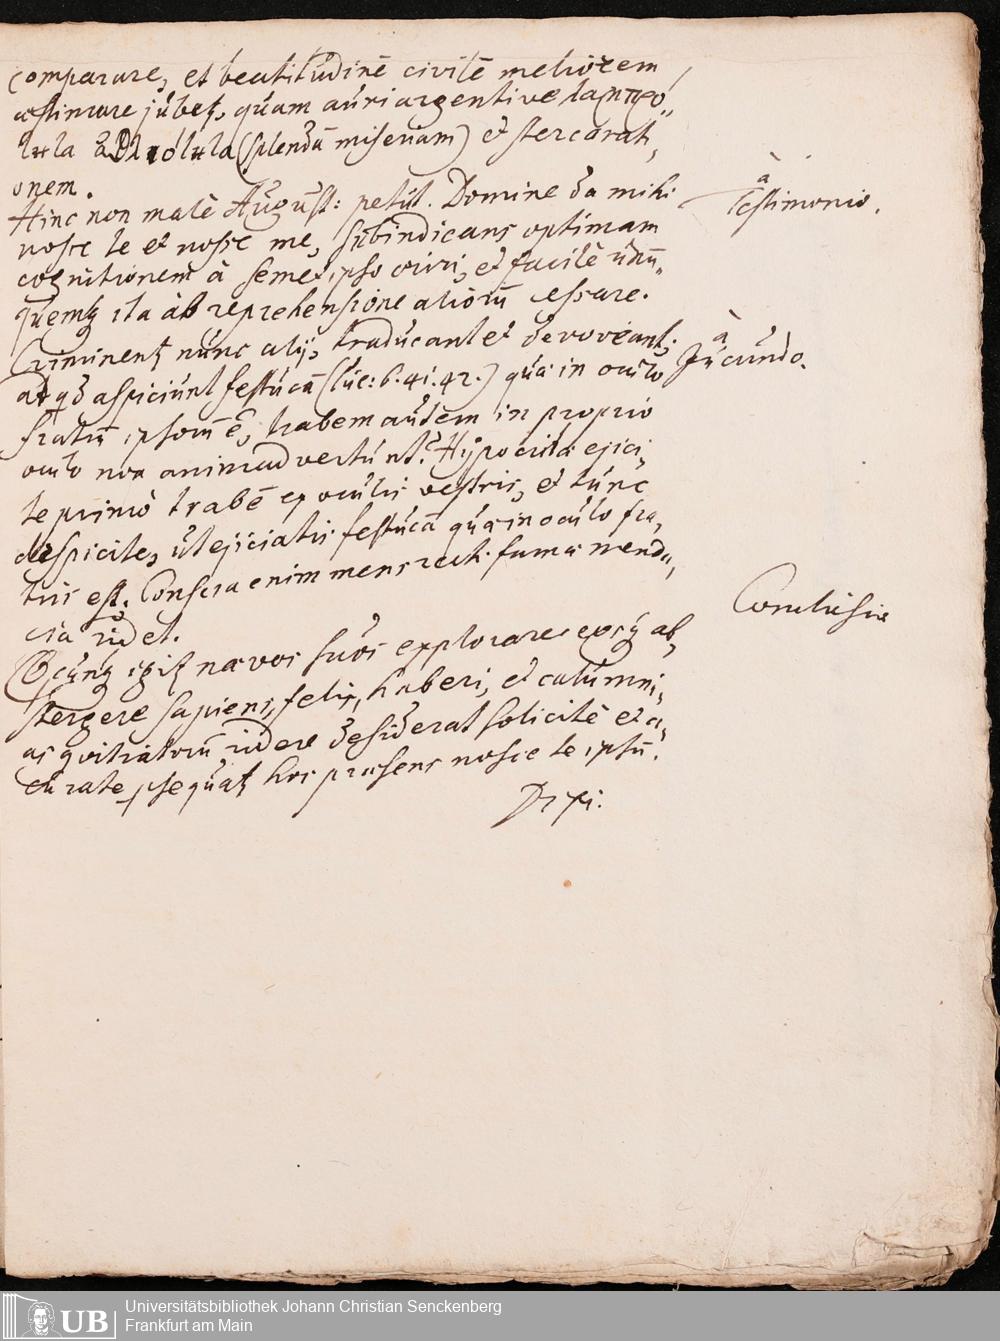 comparare, et beatitudinē civilē meliorem
æstimare jubet, quam auri argentive λαμπρό„
τατα (splendā miseriam) et stercorati„
onem.
Hinc non malè August: petiit. Domine da mihi
à
Testimonio.
nosce te et nosce me, subindicans optimam
cognitionem à semetipso oriri, et facilè unū„
quemq ita ab reprehensione aliorū cessare.
Criminent nunc alij, traducant et devoveant,
à
Jucundo.
atqd aspiciunt festucā (Luc: 6. 41. 42.) quæ in oculo
fratrū ipsorū ē, trabem autem in proprio
oculo non animadvertunt? Hypocritæ ejici„
te primò trabē ex oculis vestris, et tunc
despicite, ut ejiciatis festucā quæ in oculo fra„
tris est. Conscia enim mens recti famæ menda„
cia ridet.
Conclusio
Qcunq igit nævos suos explorare eosq ab„
stergere sapiens, felix, haberi, et calumni„
as vitiatorū ridere desiderat solicitè et a„
curate psequat hos præsens nosce te ipsū.
Dixi.
Universitätsbibliothek Johann Christian Senckenberg
Frankfurt am Main
UB